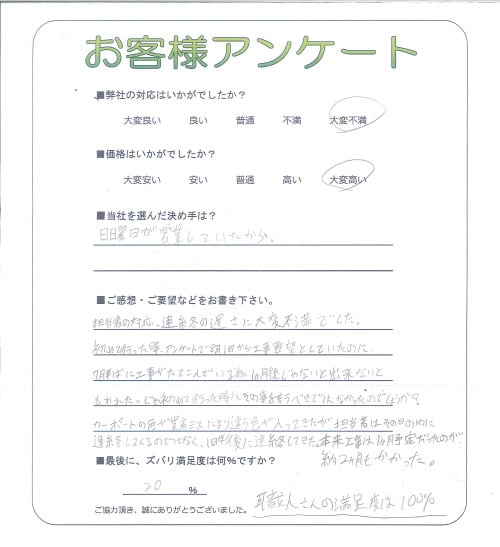 お客様アンケート
■弊社の対応はいかがでしたか？
大変良い　良い　普通　不満　大変不満
■価格はいかがでしたか？
大変安い　安い　普通　高い　大変高い
■当社を選んだ決め手は？
日曜日が営業していたから。
■ご感想・ご要望などをお書き下さい。
担当者の対応、連絡の遅さに大変不満でした。
初めて行った時、アンケートで8月1日から工事希望としていたのに、
7月半ばに工事がたてこんでいる為1ヶ月後じゃないと出来ないと
初めて行った時にその事を言うべきではなかったのでしょうか？
カーポートの色が業者ミスにより違う色が入ってきたが担当者はその日の内に
連絡してくるのではなく、後に連絡してきた。本来工事は1ヶ月予定だったのが
約2ヶ月もかかった。
■最後に、ズバリ満足度は何%ですか？
20 %
職人さんの満足度は100%
ご協力頂き、誠にありがとうございました。